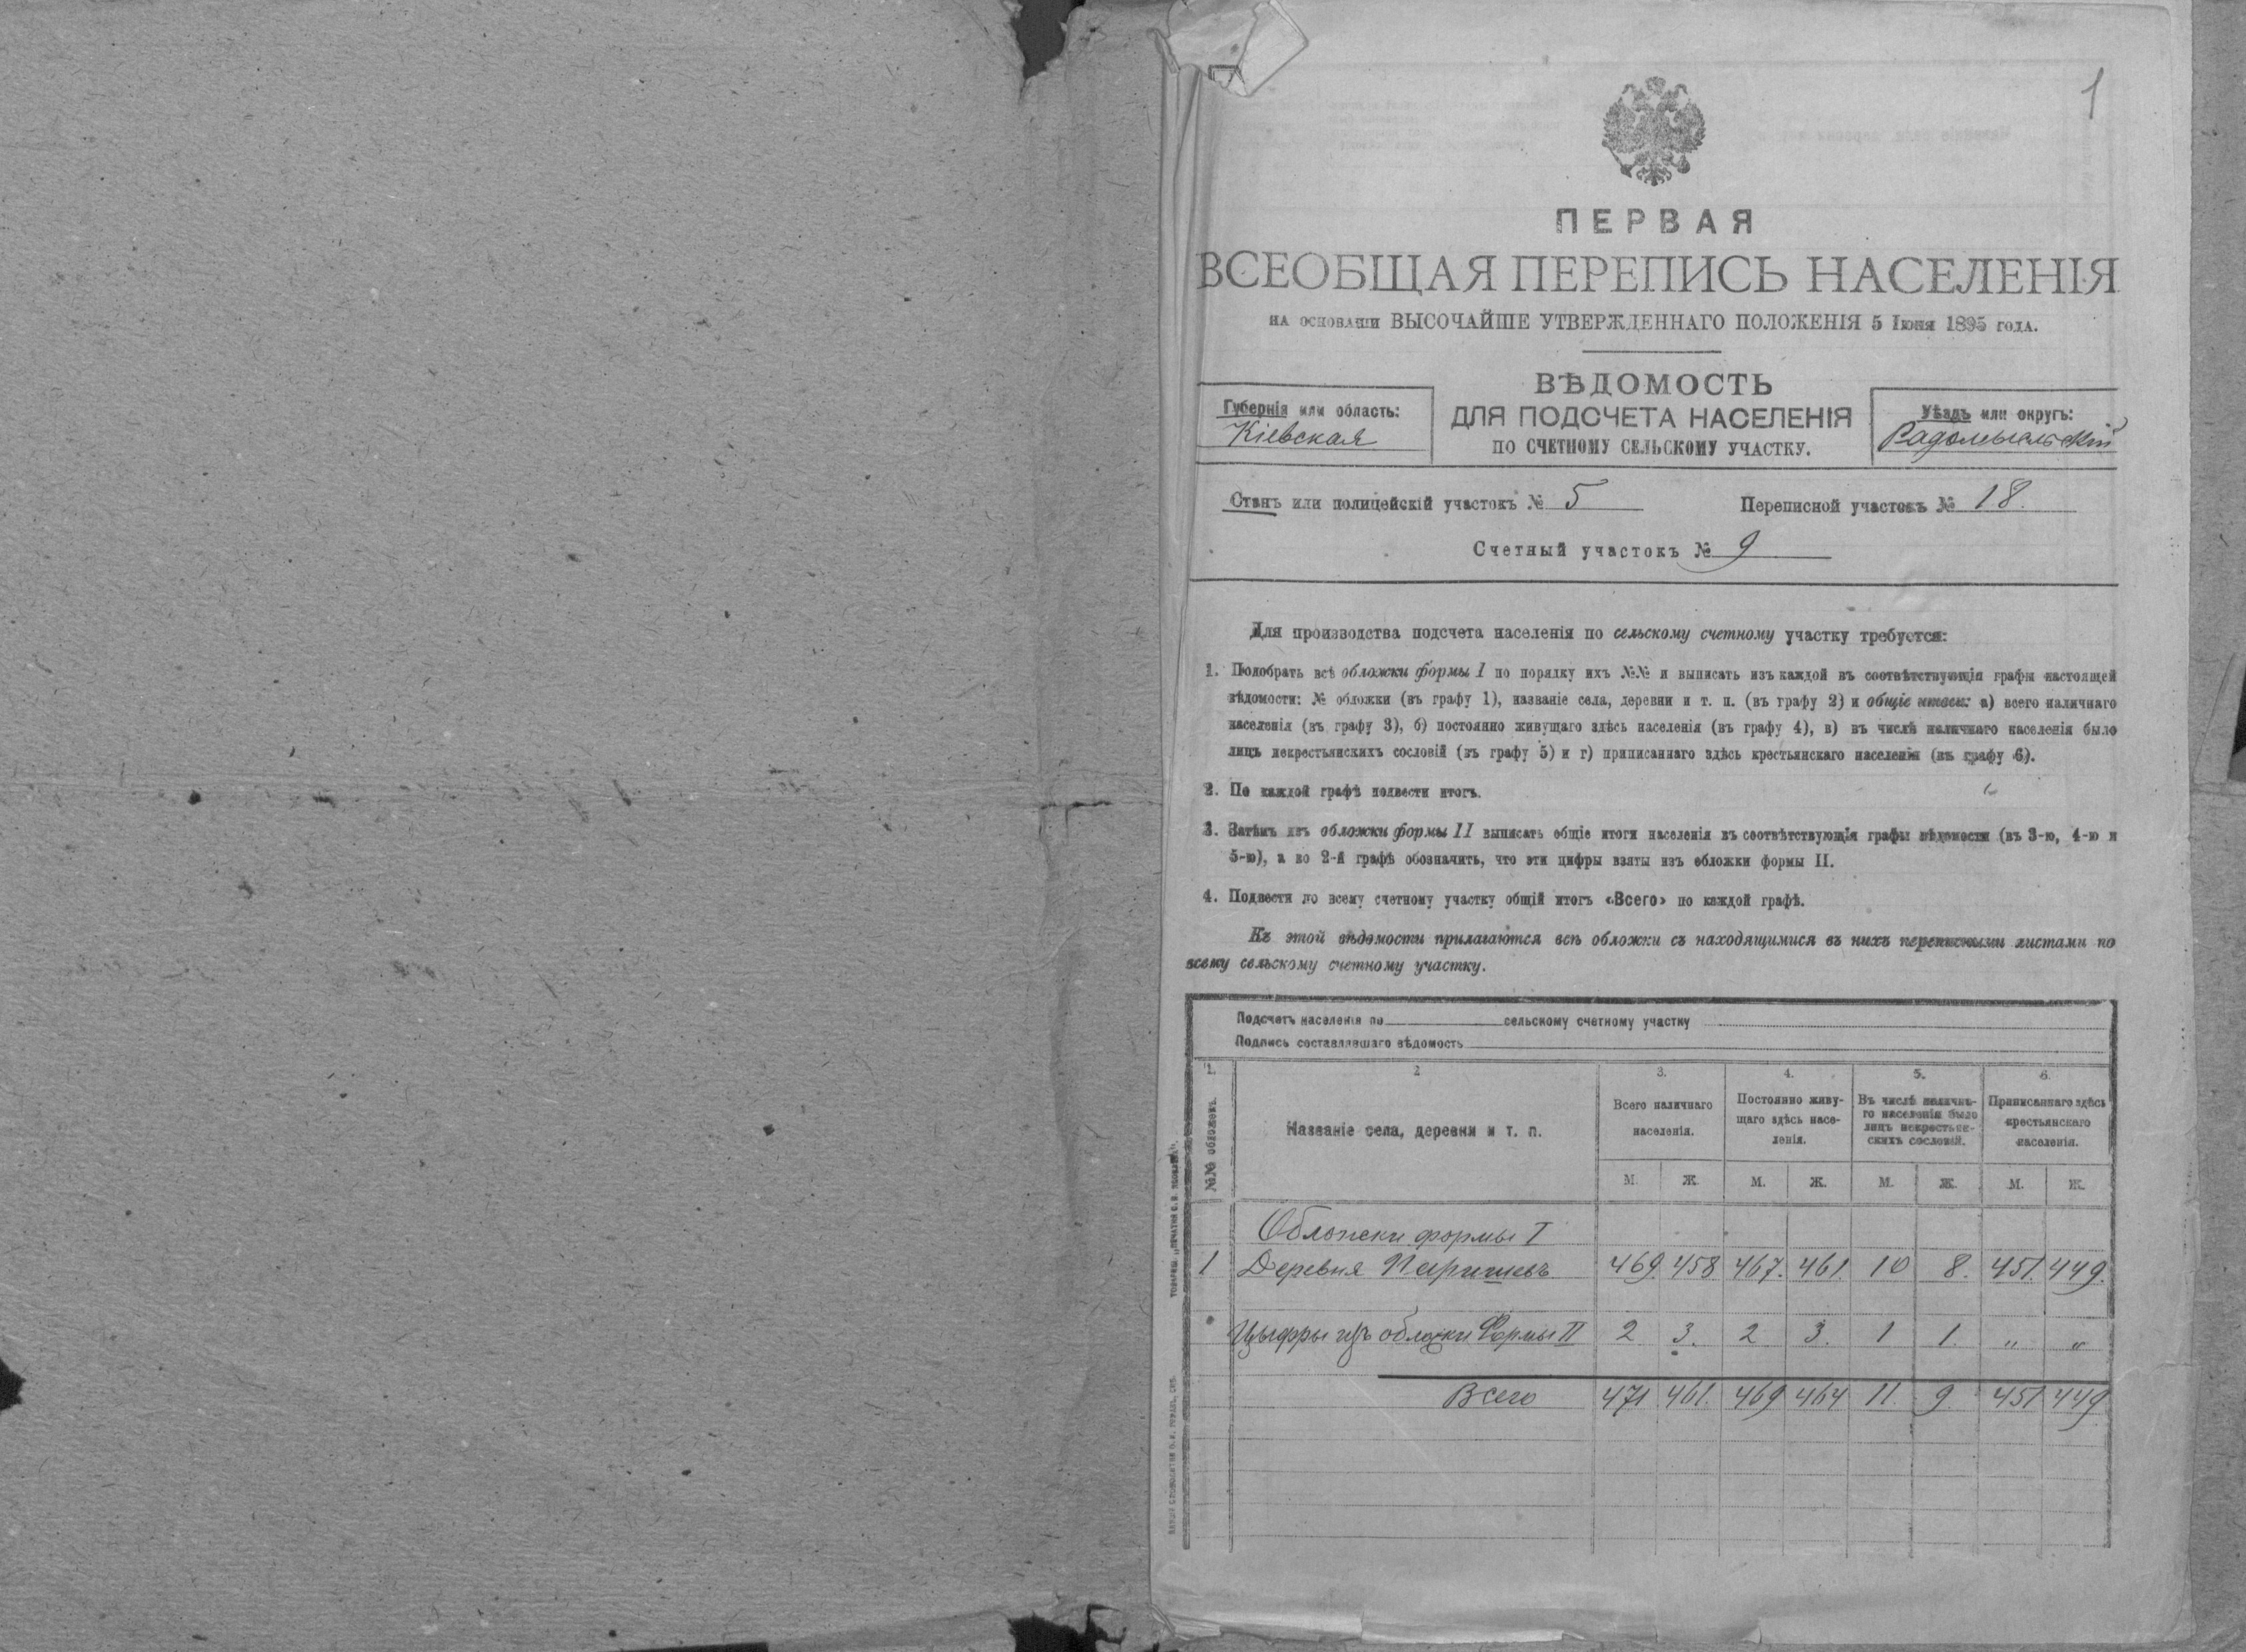 1
ПЕРВАЯ
ВСЕОБЩАЯ ПЕРЕПИСЬ НАСЕЛЕНІЯ
НА ОСНОВАНІИ ВЫСОЧАЙШЕ УТВЕРЖДЕННАГО ПОЛОЖЕНІЯ 5 Іюня 1895 ГОДА.
ВѢДОМОСТЬ
ДЛЯ ПОДСЧЕТА НАСЕЛЕНІЯ
ПО СЧЕТНОМУ СЕЛЬСКОМУ УЧАСТКУ.
Губернія или область:
Кіевская
Уѣздъ или округъ:
Радомысльскій
Станъ или полицейскій участокъ № 5 Переписной участокъ № 18.
Счетный участокъ № 9
Для производства подсчета населенія по сельскому счетному участку требуется:
1. Подобрать всѣ обложки формы I по порядку ихъ №№ и выписать изъ каждой въ соотвѣтствующія графы настоящей
вѣдомости: № обложки (въ графу 1), названіе села, деревни и т. п. (въ графу 2) и общіе итоги: а) всего наличнаго
населенія (въ графу 3), б) постоянно живущаго здѣсь населенія (въ графу 4), в) въ числѣ наличнаго населенія было
лицъ некрестьянскихъ сословій (въ графу 5) и г) приписаннаго здѣсь крестьянскаго населенія (въ графу 6).
2. По каждой графѣ подвести итогъ.
3. Затѣмъ изъ обложки формы II выписать общіе итоги населенія въ соотвѣтствующія графы вѣдомости (въ 3-ю, 4-ю и
5-ю), а во 2-й графѣ обозначить, что эти цифры взяты изъ обложки формы II.
4. Подвести по всему счетному участку общій итогъ «Всего» по каждой графѣ.
Къ этой вѣдомости прилагаются всѣ обложки съ находящимися въ нихъ переписными листами по
всему сельскому счетному участку.
Подсчетъ населенія по сельскому счетному участку
Подпись составлявшаго вѣдомость
1. 2 3. 4. 5. 6.
№№ обложекъ.
Названіе села, деревни и т. п.
Всего наличнаго
населенія.
Постоянно живу-
щаго здѣсь насе-
ленія.
Въ числѣ налична-
го населенія было
лицъ некрестьян-
скихъ сословій.
Приписаннаго здѣсь
крестьянскаго
населенія.
М. Ж. М. Ж. М. Ж. М. Ж.
Обложки формы I
1 Деревня Паришевъ 469. 458 467. 461. 10 8. 451. 449.
Цыфры изъ обложки Формы II 2 3. 2 3. 1 1. „ „
Всего 471 461. 469 464 11. 9. 451 449